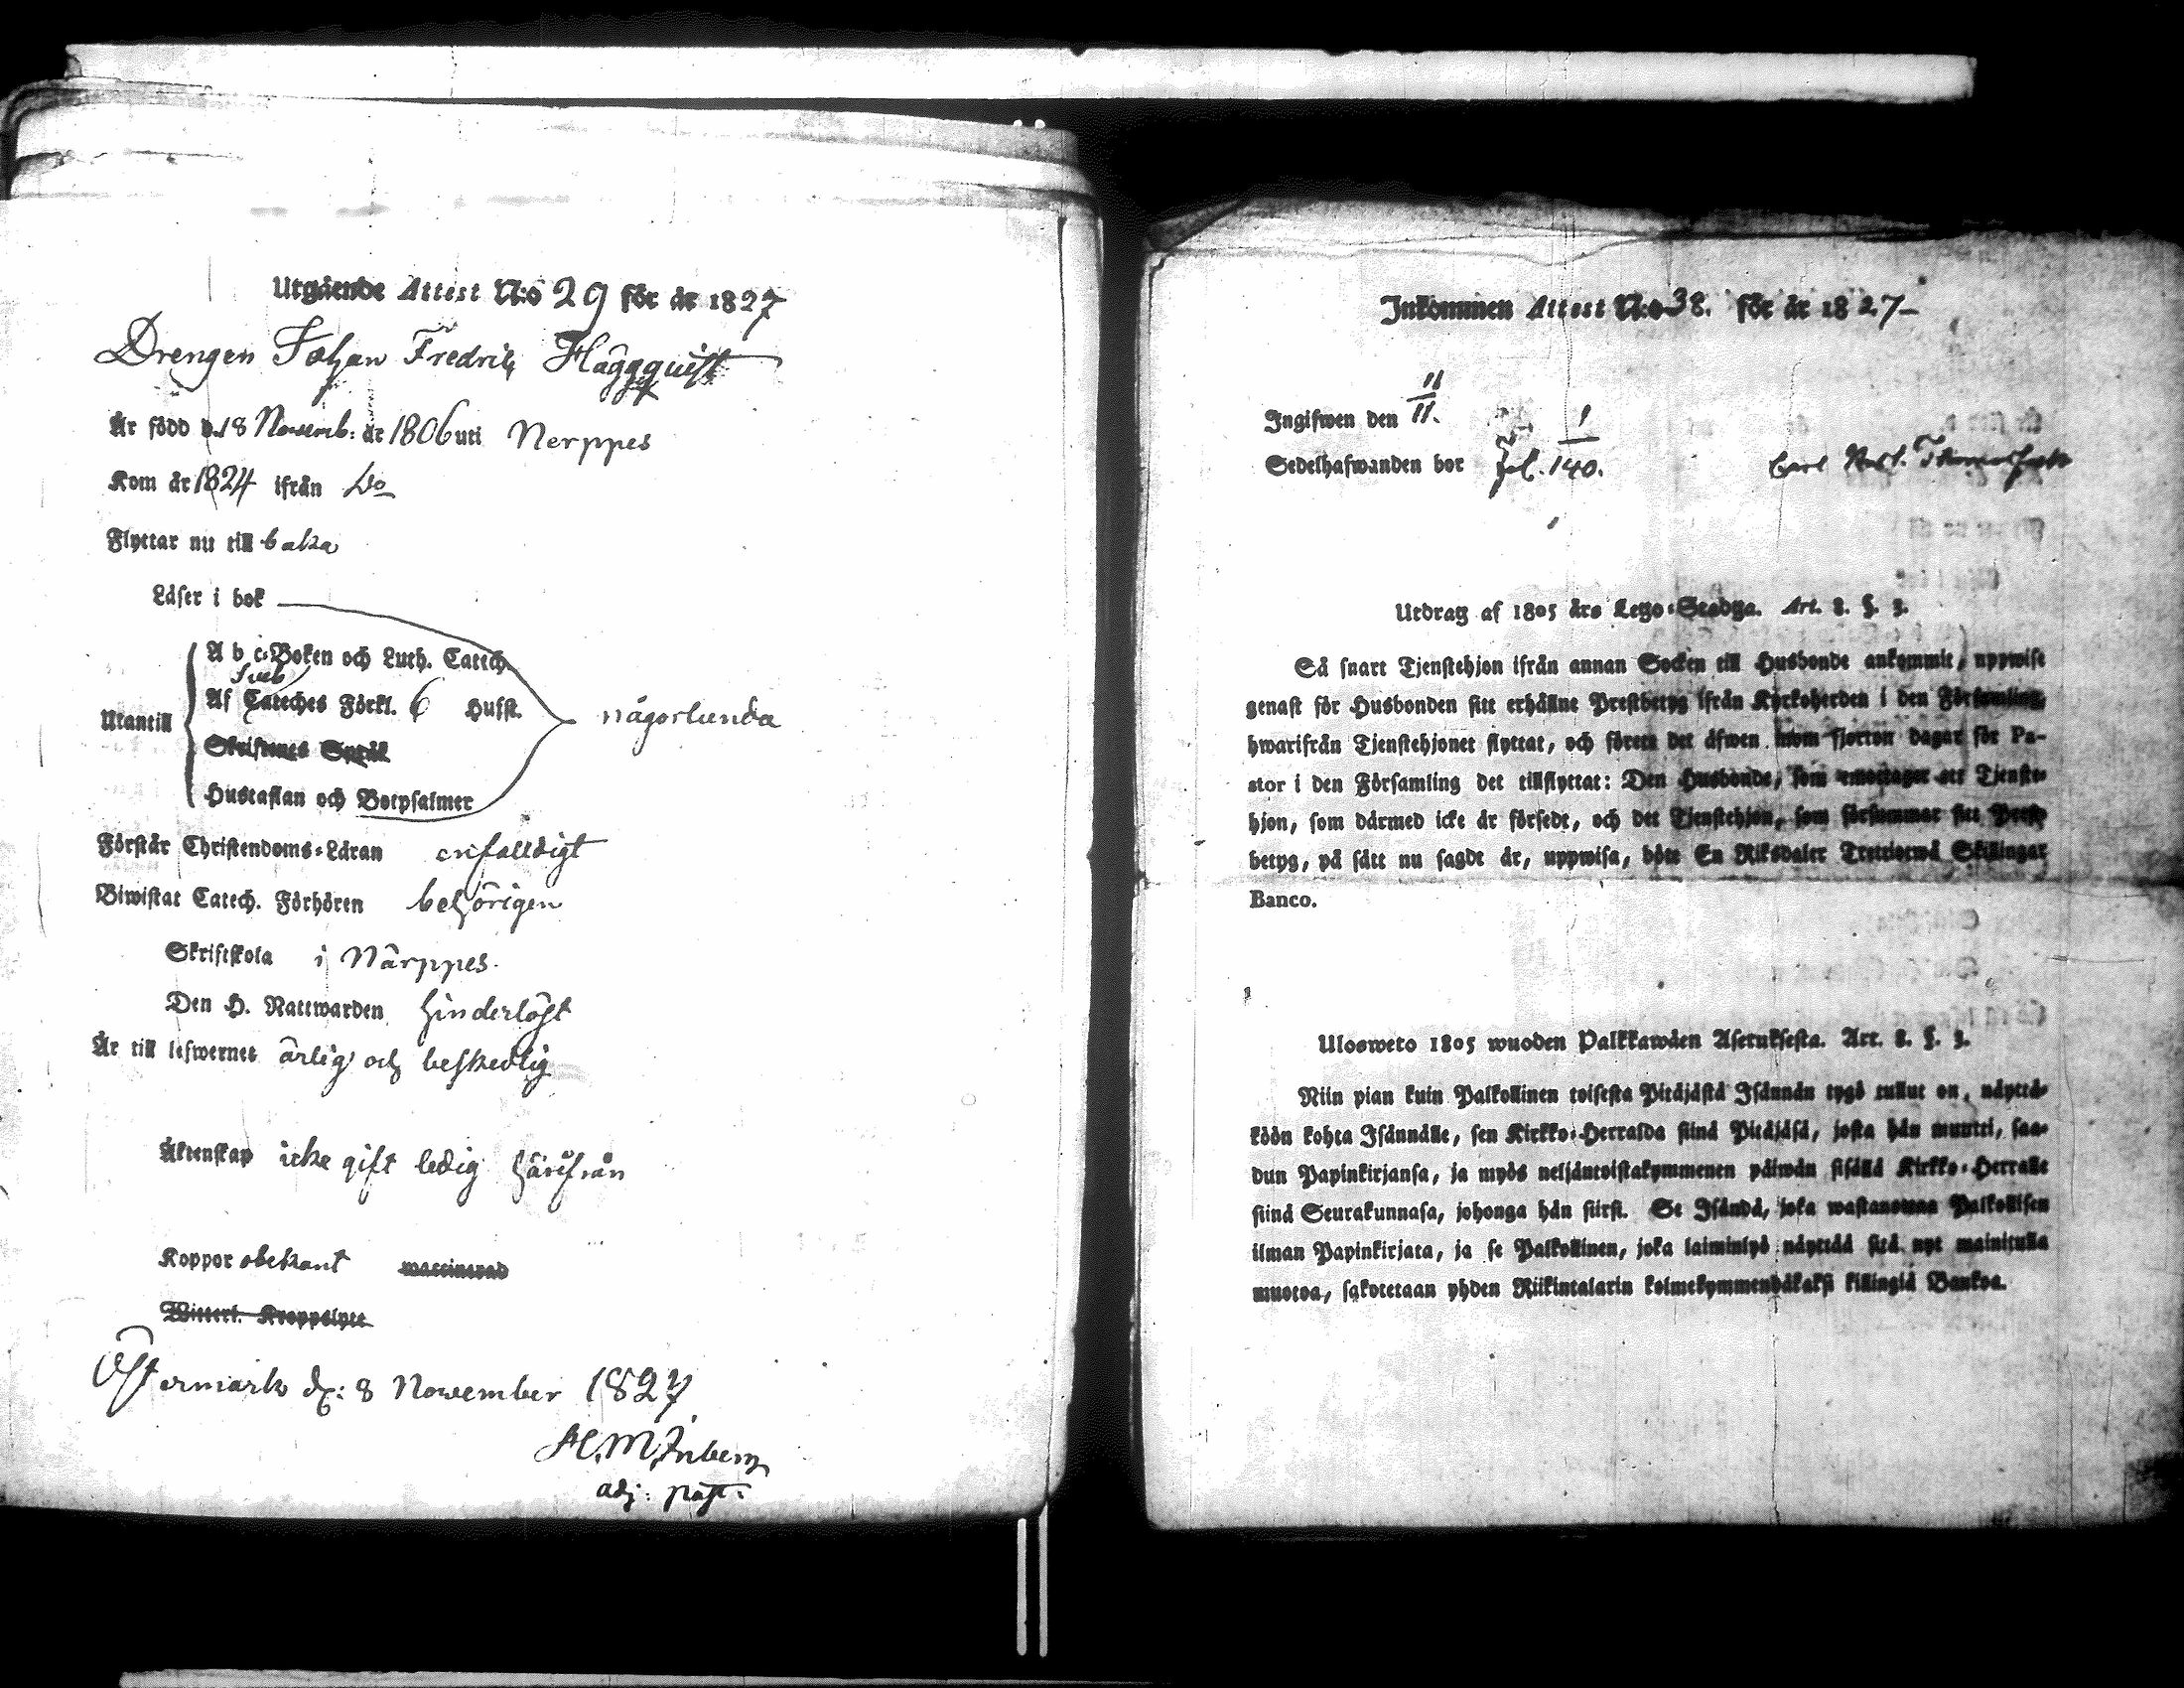 Utgående Attest N:o 29 för år 1827
Drengen Johan Fredric Häggquist
Är född d. 18 Novemb: år 1806 uti Nerppes
Kom år 1824 ifrån Do
Flyttar nu till baka
Läser i bok
A b c-Boken och Luth. Catech.
Sveb
Af Cateches Förkl. 6 Hufst.
Utantill
någorlunda
Skriftenes Språk
Hustaflan och Botpsalmer
Förstår Christendoms-Läran enfalldigt
Biwistat Catech. Förhören behörigen
Skriftskola i Närppes.
Den H. Nattwarden hinderlöst
Är till lefwernet ärlig och beskedlig
Äktenskap icke gift ledig härifrån
Koppor obekant waccinerad
Witterl. Kroppslyte
Östermark d: 8 November 1827
adj: past:
Inkommen Attest N:o 38. för år 1827
Ingifwen den 11/11.
1
Sedelhafwanden bor fol. 140. Carl
Utdrag af 1805 års Lego-Stadga. Art. 8. §. 3.
Så snart Tjenstehjon ifrån annan Socken till Husbonde ankommit, uppwise
genast för Husbonden sitt erhållne Prestbetyg ifrån Kyrkoherden i den Församling,
hwarifrån Tjenstehjonet flyttat, och förete det äfwen inom fjorton dagar för Pa-
stor i den Församling det tillflyttat: Den Husbonde, som emottager ett Tjenste-
hjon, som därmed icke är försedt, och det Tjenstehjon, som försummar sitt Prest-
betyg, på sätt nu sagdt är, uppwisa, böte En Riksdaler Trettiotwå Skillingar
Banco.
Ulosweto 1805 wuoden Palkkawäen Asetuksesta. Art. 8. §. 3.
Niin pian kuin Palkollinen toisesta Pitäjästä Isännän tygö tullut on, näyttä-
köön kohta Isännälle, sen Kirkko-Herralda siinä Pitäjäsä, josta hän muutti, saa-
dun Papinkirjansa, ja myös neljäntoistakymmenen päiwän sisällä Kirkko-Herralle
siinä Seurakunnasa, johonga hän siirsi. Se Isändä, joka wastanottaa Palkollisen
ilman Papinkirjata, ja se Palkollinen, joka laiminlyö näyttää sitä nyt mainitulla
muotoa, sakotetaan yhden Riikintalarin kolmekymmendäkaksi killingiä Bankoa.